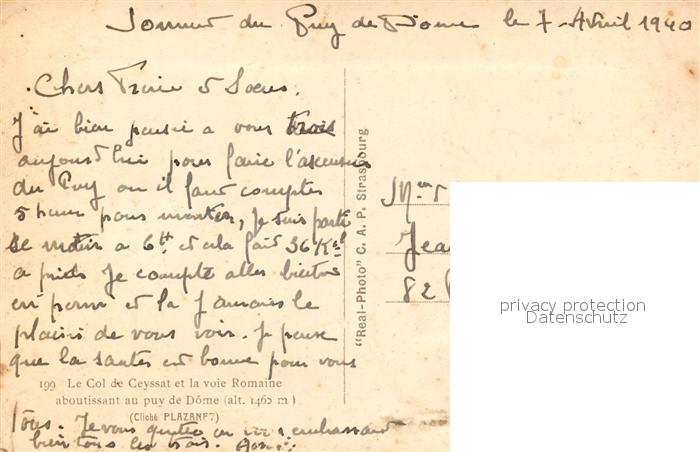 Sommet du Puy de Dome le 7 Avril 1940
Chers Frère et Soeurs,
J'ai bien pensé a vous trois
aujourd'hui pour faire l'ascension
du Puy ou il faut compter
5 heures pour monter, Je suis parti
le matin a 6H et cela fait 36 Kes
a pieds Je compte aller bientot
en perm et la J'aurais le
plaisir de vous voir. Je pense
que la santée est bonne pour vous
Tous. Je vous quitte en embrassant
bien tous les trois.
199 Le Col de Ceyssat et la voie Romaine
aboutissant au puy de Dôme (alt. 1465 m)
(Cliché PLAZANET)
"Real-Photo" C. A. P. Strasbourg
Jea
82
privacy protection
Datenschutz